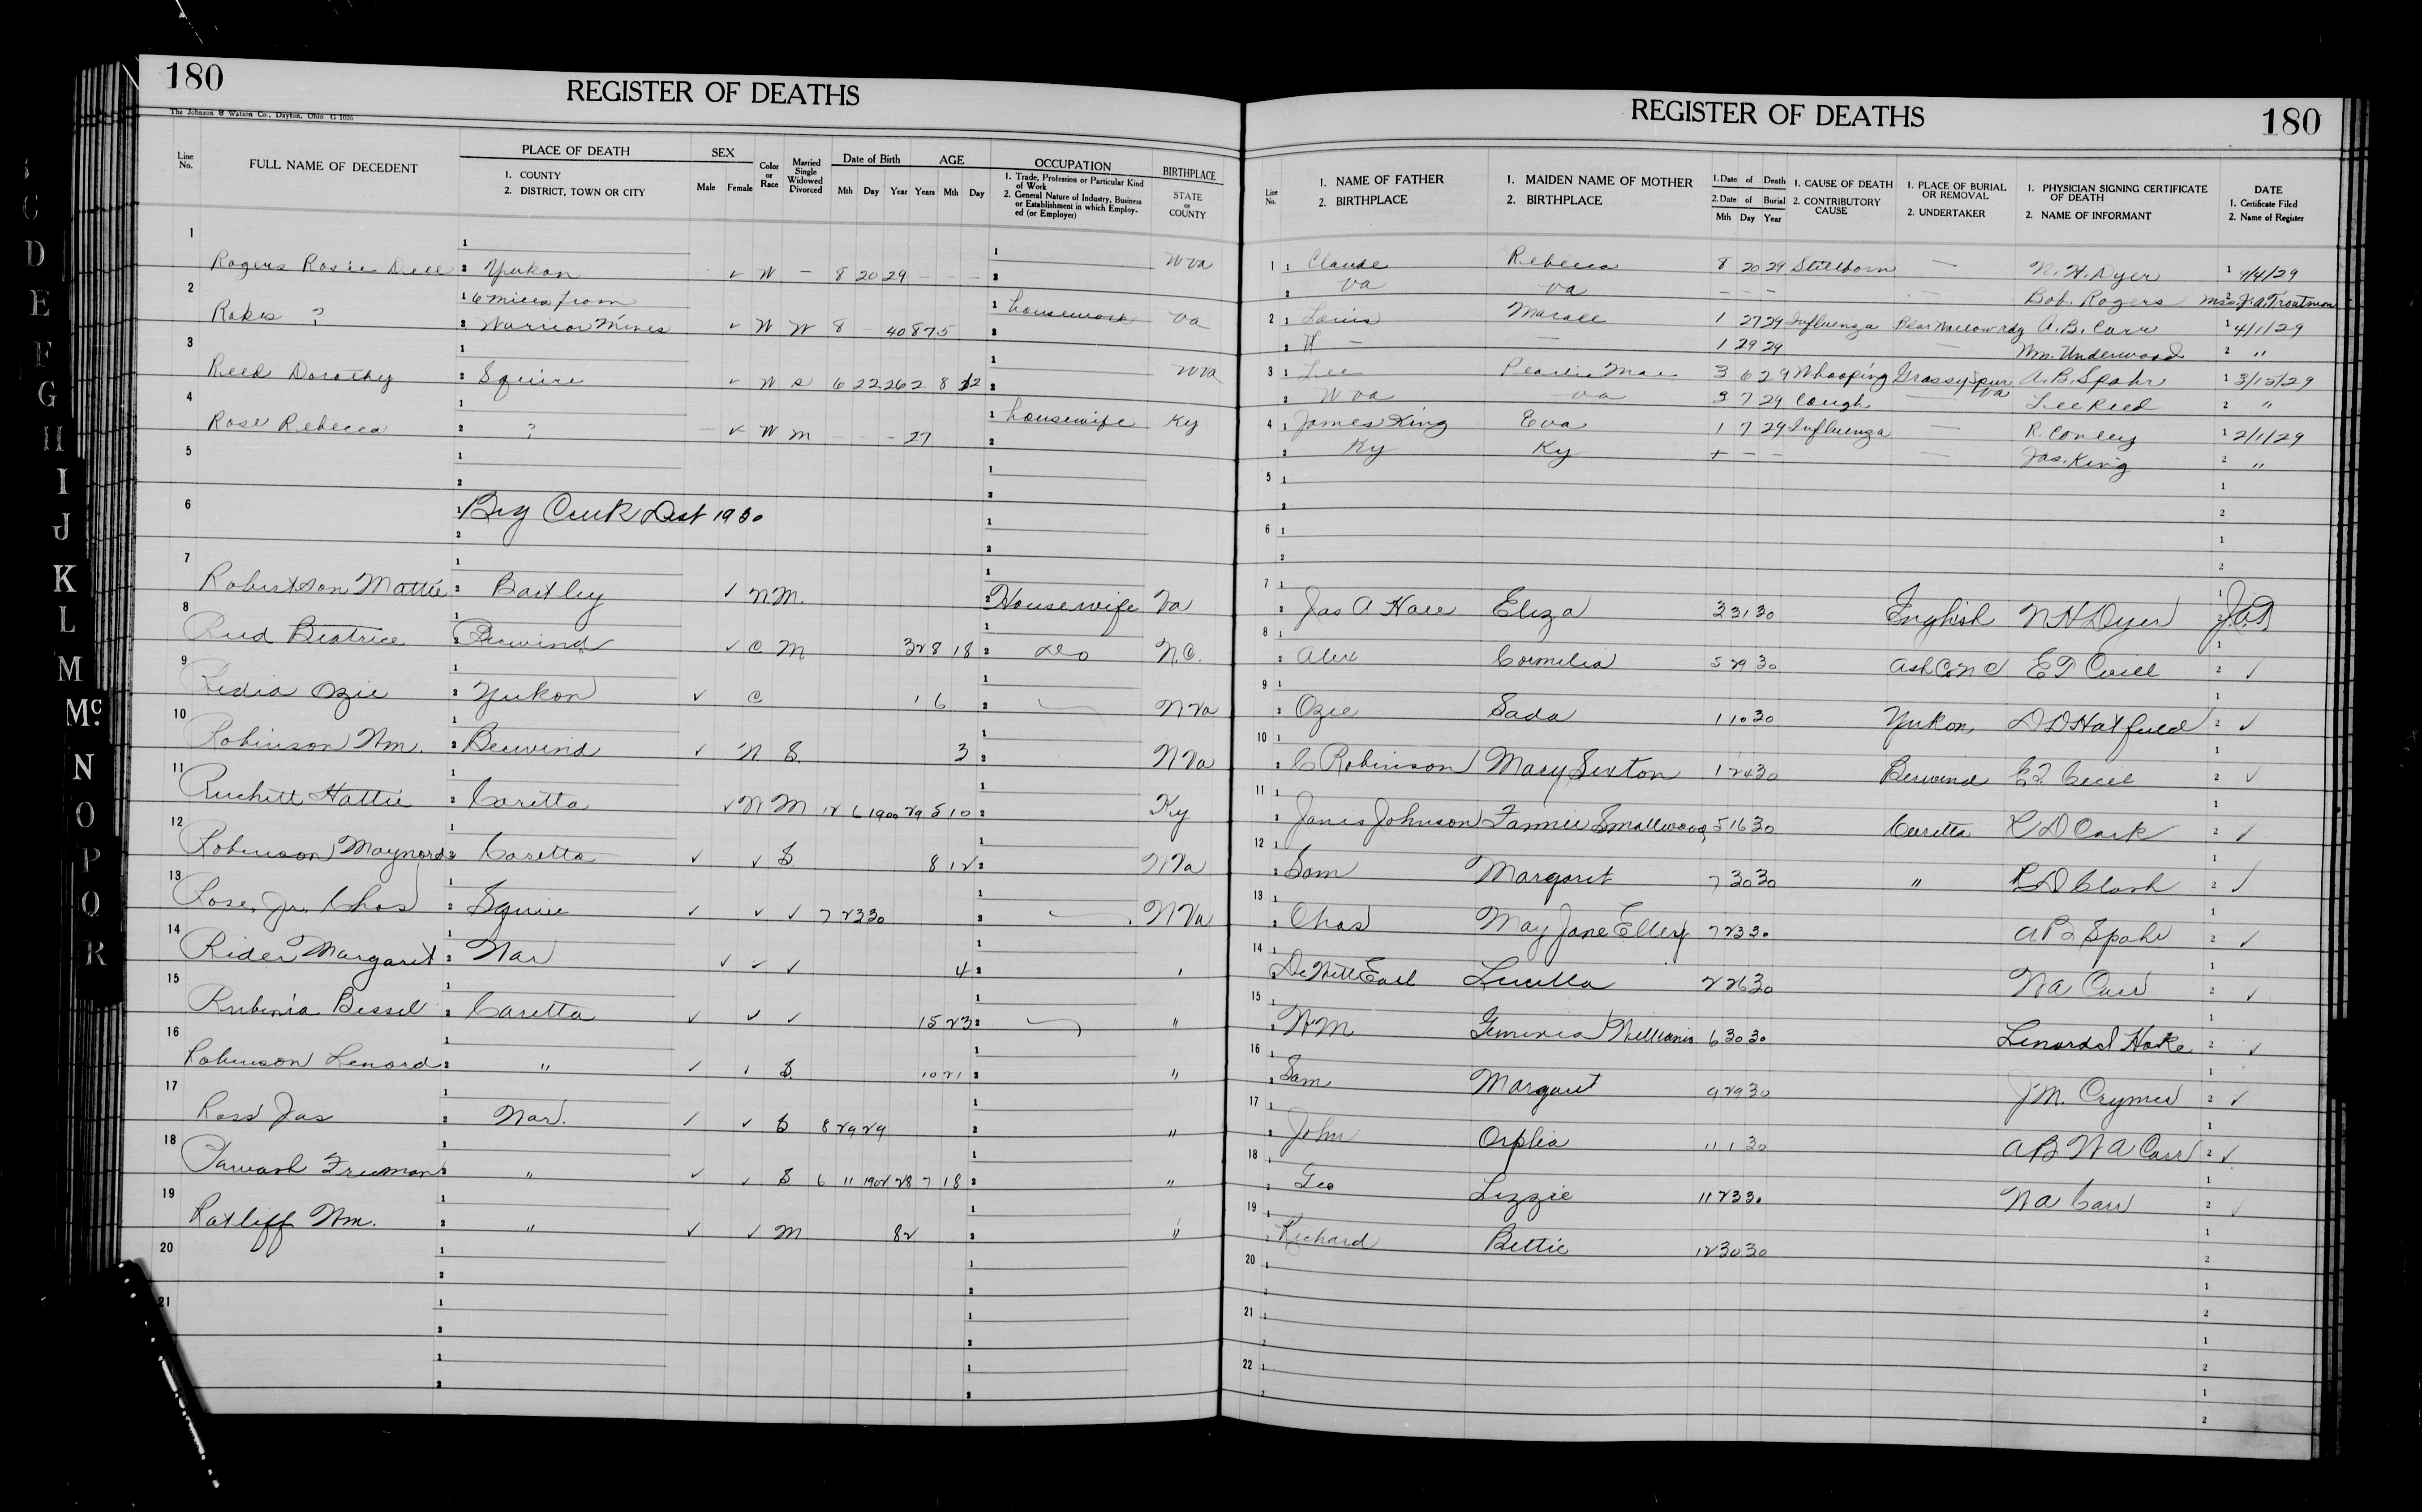 180
REGISTER OF DEATHS
The Johnson & Watson Co., Dayton, Ohio G 1036
Line No. FULL NAME OF DECEDENT PLACE OF DEATH 1. COUNTY 2. DISTRICT, TOWN OR CITY SEX Male Female Color or Race Married Single Widowed Divorced Date of Birth Mth Day Year AGE Years Mth Day OCCUPATION 1. Trade, Profession or Particular Kind of Work 2. General Nature of Industry, Business or Establishment in which Employed (or Employer) BIRTHPLACE STATE or COUNTY
1 Rogers Rosie Dell Yukon ✓ W — 8 20 29 — — W Va
2 Rakes ? 6 miles from Warrior Mines ✓ W W 8 - 40 87 5 housework Va
3 Reed Dorothy Squire ✓ W S 6 22 26 2 8 12 W Va
4 Rose Rebecca ? ✓ W M - - - 27 housewife Ky
5
6 Big Creek Dist 1930
7 Robertson Mattie Bartley ✓ N M. Housewife Va
8 Reed Beatrice Berwind ✓ C M 32 8 18 do N.C.
9 Ozie Yukon ✓ C 1 6 W Va
10 Robinson Wm. Berwind ✓ N S. 3 W Va
11 Hattie Caretta ✓ M 12 6 1900 29 5 10 Ky
12 Robinson Maynord Caretta ✓ ✓ S. 8 12 W Va
13 Rose, Jr. Chas Squire ✓ ✓ ✓ 7 23 30 W Va
14 Rider Margaret War ✓ ✓ ✓ 4
15 Caretta ✓ ✓ ✓ 15 23 "
16 Robinson Lenord " ✓ ✓ S. 10 21 "
17 Ross Jas War. ✓ ✓ S 8 29 29 "
18 Freeman " ✓ ✓ S. 6 11 1902 28 7 18 "
19 Ratliff Wm. " ✓ ✓ M 82 "
20
21
REGISTER OF DEATHS
180
Line No. 1. NAME OF FATHER 2. BIRTHPLACE 1. MAIDEN NAME OF MOTHER 2. BIRTHPLACE 1. Date of Death 2. Date of Burial Mth Day Year 1. CAUSE OF DEATH 2. CONTRIBUTORY CAUSE 1. PLACE OF BURIAL OR REMOVAL 2. UNDERTAKER 1. PHYSICIAN SIGNING CERTIFICATE OF DEATH 2. NAME OF INFORMANT DATE 1. Certificate Filed 2. Name of Register
1 Claude Rebecca 8 20 29 Stillborn — N. H. Dyer 9/4/29
Va Va — — — — Bob. Rogers Mrs. J. A. Troutman
2 Louis 1 27 29 Influenza A. B. Carr 4/1/29
— 1 29 29 — Wm. Underwood "
3 Lee Pearlie Mae 3 6 29 Whooping Grassy Spur Va A. B. Spahr 3/15/29
W Va Va 3 7 29 Cough — Lee Reed "
4 James King Eva 1 7 29 Influenza — R. Conley 2/1/29
Ky Ky + — — — Jas. King "
5
6
7 Jas A Hall Eliza 3 31 30 English N H Dyer J.A.T.
8 Alex Cornelia 5 29 30 Ash Co N C E T Cecil ✓
9 Ozie Sada 1 10 30 Yukon D D Hatfield ✓
10 C Robinson Mary Sexton 1 24 30 Berwind E T Cecil ✓
11 James Johnson Fannie Smallwood 5 16 30 Caretta ✓
12 Sam Margaret 7 30 30 " R D Clark ✓
13 Chas May Jane Ellery 7 23 30 A B Spahr ✓
14 DeWitt Earl Luella 2 26 30 W A Carr ✓
15 Wm Williams 6 30 30 ✓
16 Sam Margaret 9 29 30 J. M. Crymer ✓
17 John Orphia 11 1 30 A B W A Carr ✓
18 Geo Lizzie 11 23 30 W A Carr ✓
19 Richard Bettie 12 30 30
20
21
22
C
D
E
F
G
H
I
J
K
L
M
Mc
N
O
P
Q
R